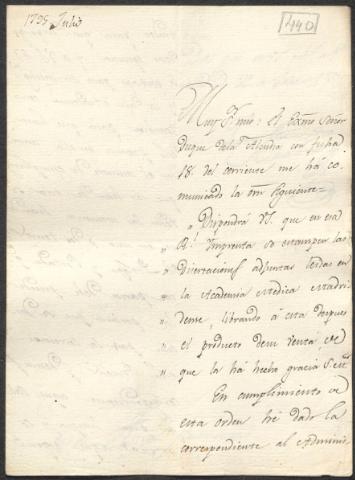 1795 Julio
440
Muy S.r mio: El Exmo Señor
Duque dela Alcudia con fecha
18. del corriente me há co-
municado la orn siguiente=
" Dispondrá VS. que en esa
" R.l Imprenta se estampen las
" Disertaciones adjuntas leidas en
" la Academia Medica Matri-
" dense, librando á esta despues
" el producto de su venta de
" que la há hecho gracia S. M.
En cumplimiento de
esta orden hé dado la
correspondiente al Adminis